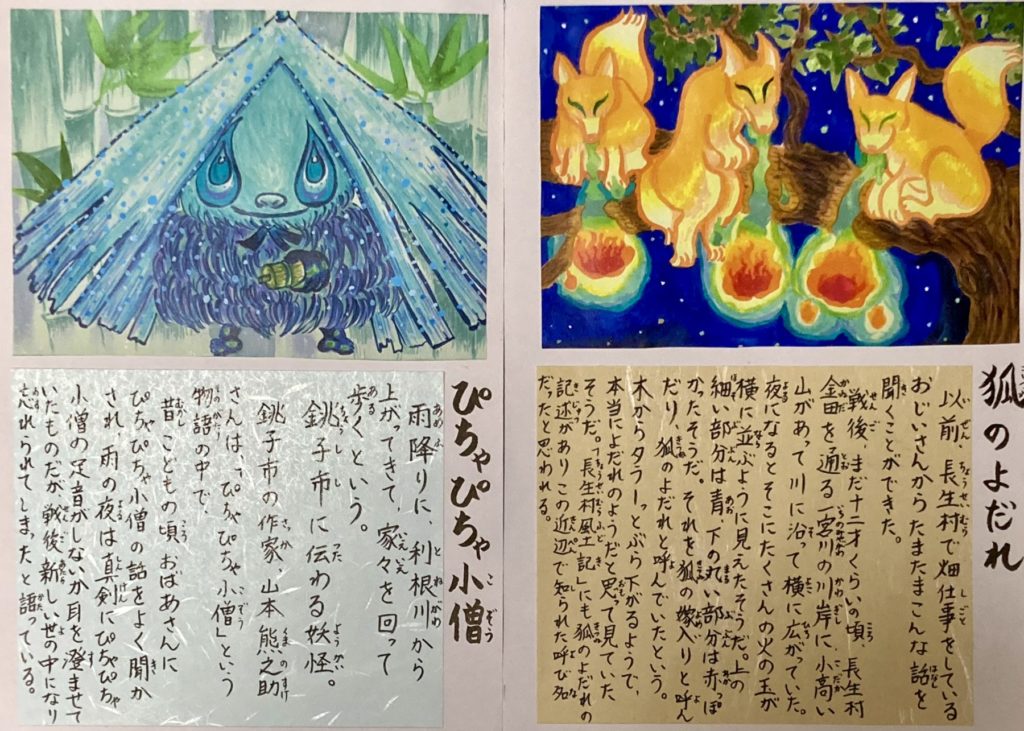 狐のよだれ
以前、長生村で畑仕事をしている
おじいさんからたまたまこんな話を
聞くことができた。
戦後、まだ十二才くらいの頃、長生村
金田を通る一宮川の川岸に、小高い
山があって川に沿って横に広がっていた。
夜になるとそこにたくさんの火の玉が
横に並ぶように見えたそうだ。上の
細い部分は青、下の丸い部分は赤っぽ
かったそうだ。それを狐の嫁入りと呼ん
だり、狐のよだれと呼んでいたという。
木からタラーっとぶら下がるようで、
本当によだれのようだと思って見ていた
そうだ。「長生村風土記」にも狐のよだれの
記述がありこの近辺で知られた呼び名
だったと思われる。
ぴちゃぴちゃ小僧
雨降りに、利根川から
上がってきて、家々を回って
歩くという。
銚子市に伝わる妖怪。
銚子市の作家、山本熊之助
さんは、「ぴちゃぴちゃ小僧」という
物語の中で、
昔こどもの頃おばあさんに
ぴちゃぴちゃ小僧の話をよく聞か
され、雨の夜は真剣にぴちゃぴちゃ
小僧の足音がしないか耳を澄ませて
いたものだが、戦後新しい世の中になり
忘れられてしまったと語っている。